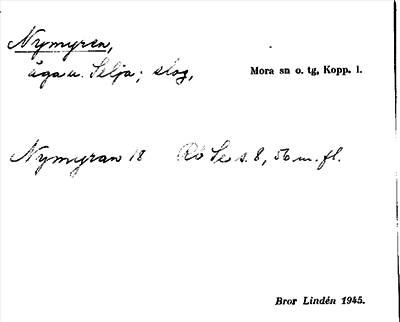 Nymyren,
äga u. Selja; slog,
Mora sn o. tg, Kopp. l.
Nymyran 18 Rö Se s. 8, 56 m. fl.
Bror Lindén 1945.